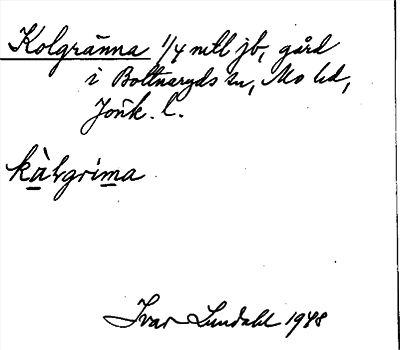 Kolgränna 1/4 mtl jb, gård
i Bottnaryds sn, Mo hd,
Jönk. l.
kàlgrima
Ivar Lundahl 1948